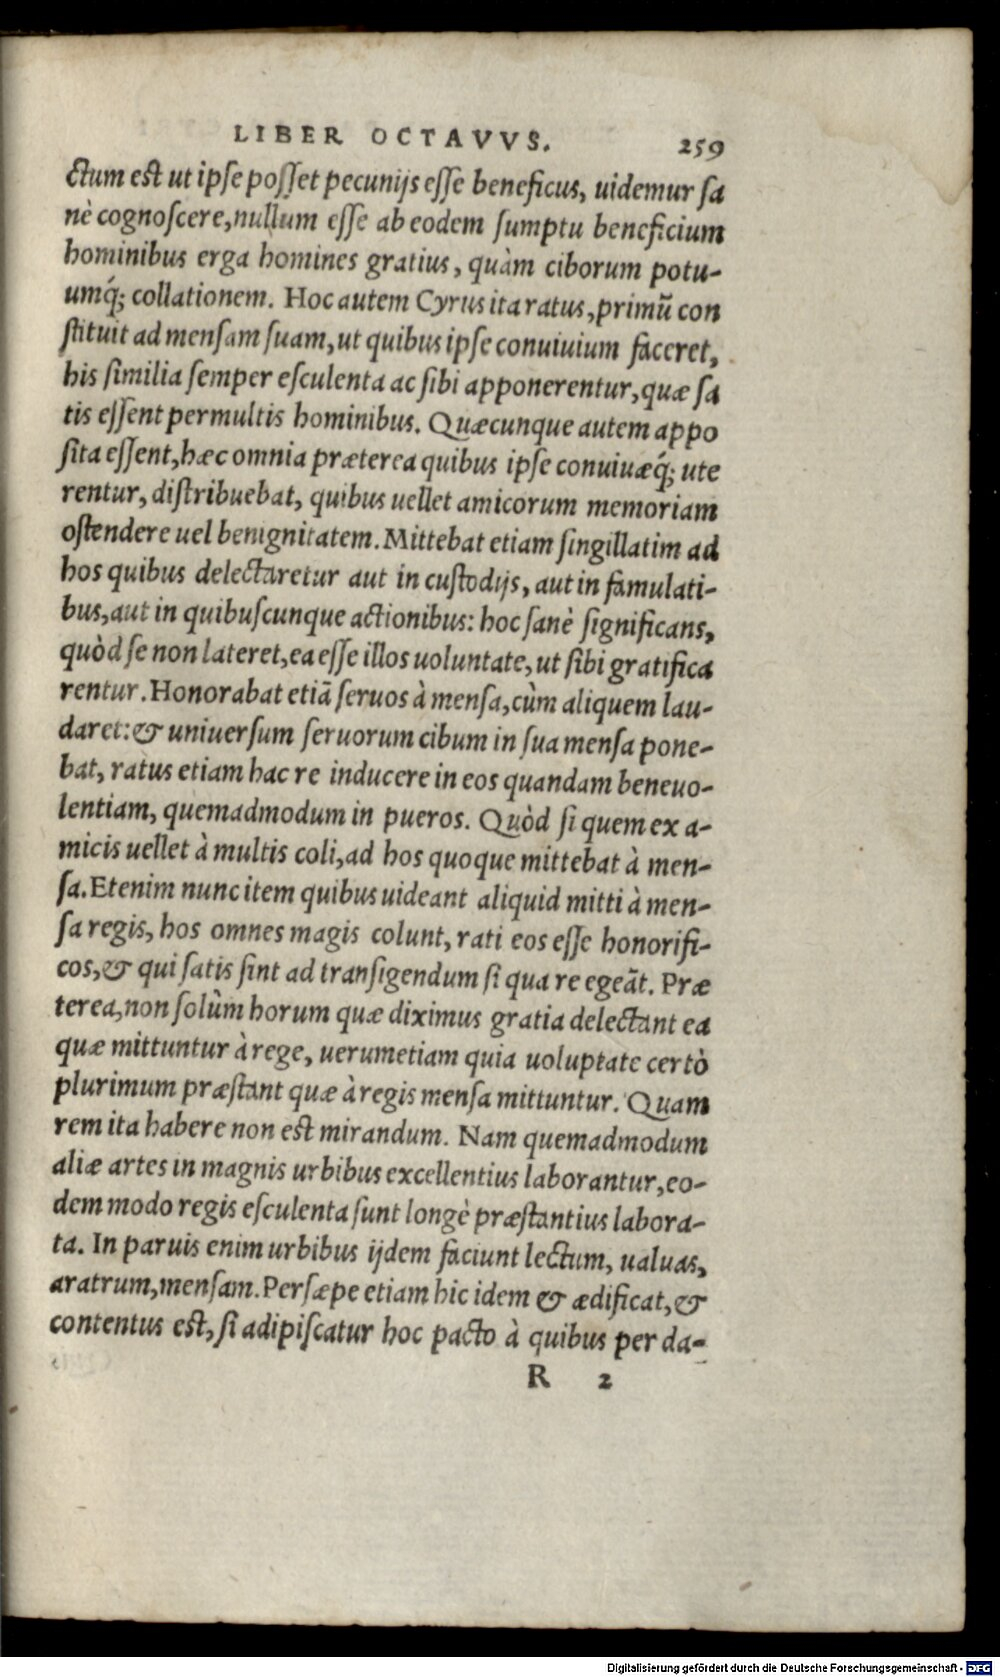 LIBER OCTAVVS. 259
ctum est ut ipse posset pecunijs esse beneficus, uidemur sa
nè cognoscere, nullum esse ab eodem sumptu beneficium
hominibus erga homines gratius, quàm ciborum potu-
umq́; collationem. Hoc autem Cyrus ita ratus, primū con
stituit ad mensam suam, ut quibus ipse conuiuium faceret,
his similia semper esculenta ac sibi apponerentur, quæ sa
tis essent permultis hominibus. Quæcunque autem appo
sita essent, hæc omnia præterea quibus ipse conuiuæq́; ute
rentur, distribuebat, quibus uellet amicorum memoriam
ostendere uel benignitatem. Mittebat etiam singillatim ad
hos quibus delectaretur aut in custodijs, aut in famulati-
bus, aut in quibuscunque actionibus: hoc sanè significans,
quòd se non lateret, ea esse illos uoluntate, ut sibi gratifica
rentur. Honorabat etiā seruos à mensa, cùm aliquem lau-
daret: & uniuersum seruorum cibum in sua mensa pone-
bat, ratus etiam hac re inducere in eos quandam beneuo-
lentiam, quemadmodum in pueros. Quòd si quem ex a-
micis uellet à multis coli, ad hos quoque mittebat à men-
sa. Etenim nunc item quibus uideant aliquid mitti à men-
sa regis, hos omnes magis colunt, rati eos esse honorifi-
cos, & qui satis sint ad transigendum si qua re egeāt. Præ
terea, non solùm horum quæ diximus gratia delectant ea
quæ mittuntur à rege, uerumetiam quia uoluptate certò
plurimum præstant quæ à regis mensa mittuntur. Quam
rem ita habere non est mirandum. Nam quemadmodum
aliæ artes in magnis urbibus excellentius laborantur, eo-
dem modo regis esculenta sunt longè præstantius labora-
ta. In paruis enim urbibus ijdem faciunt lectum, ualuas,
aratrum, mensam. Persæpe etiam hic idem & ædificat, &
contentus est, si adipiscatur hoc pacto à quibus per da-
R 2
Digitalisierung gefördert durch die Deutsche Forschungsgemeinschaft - DFG